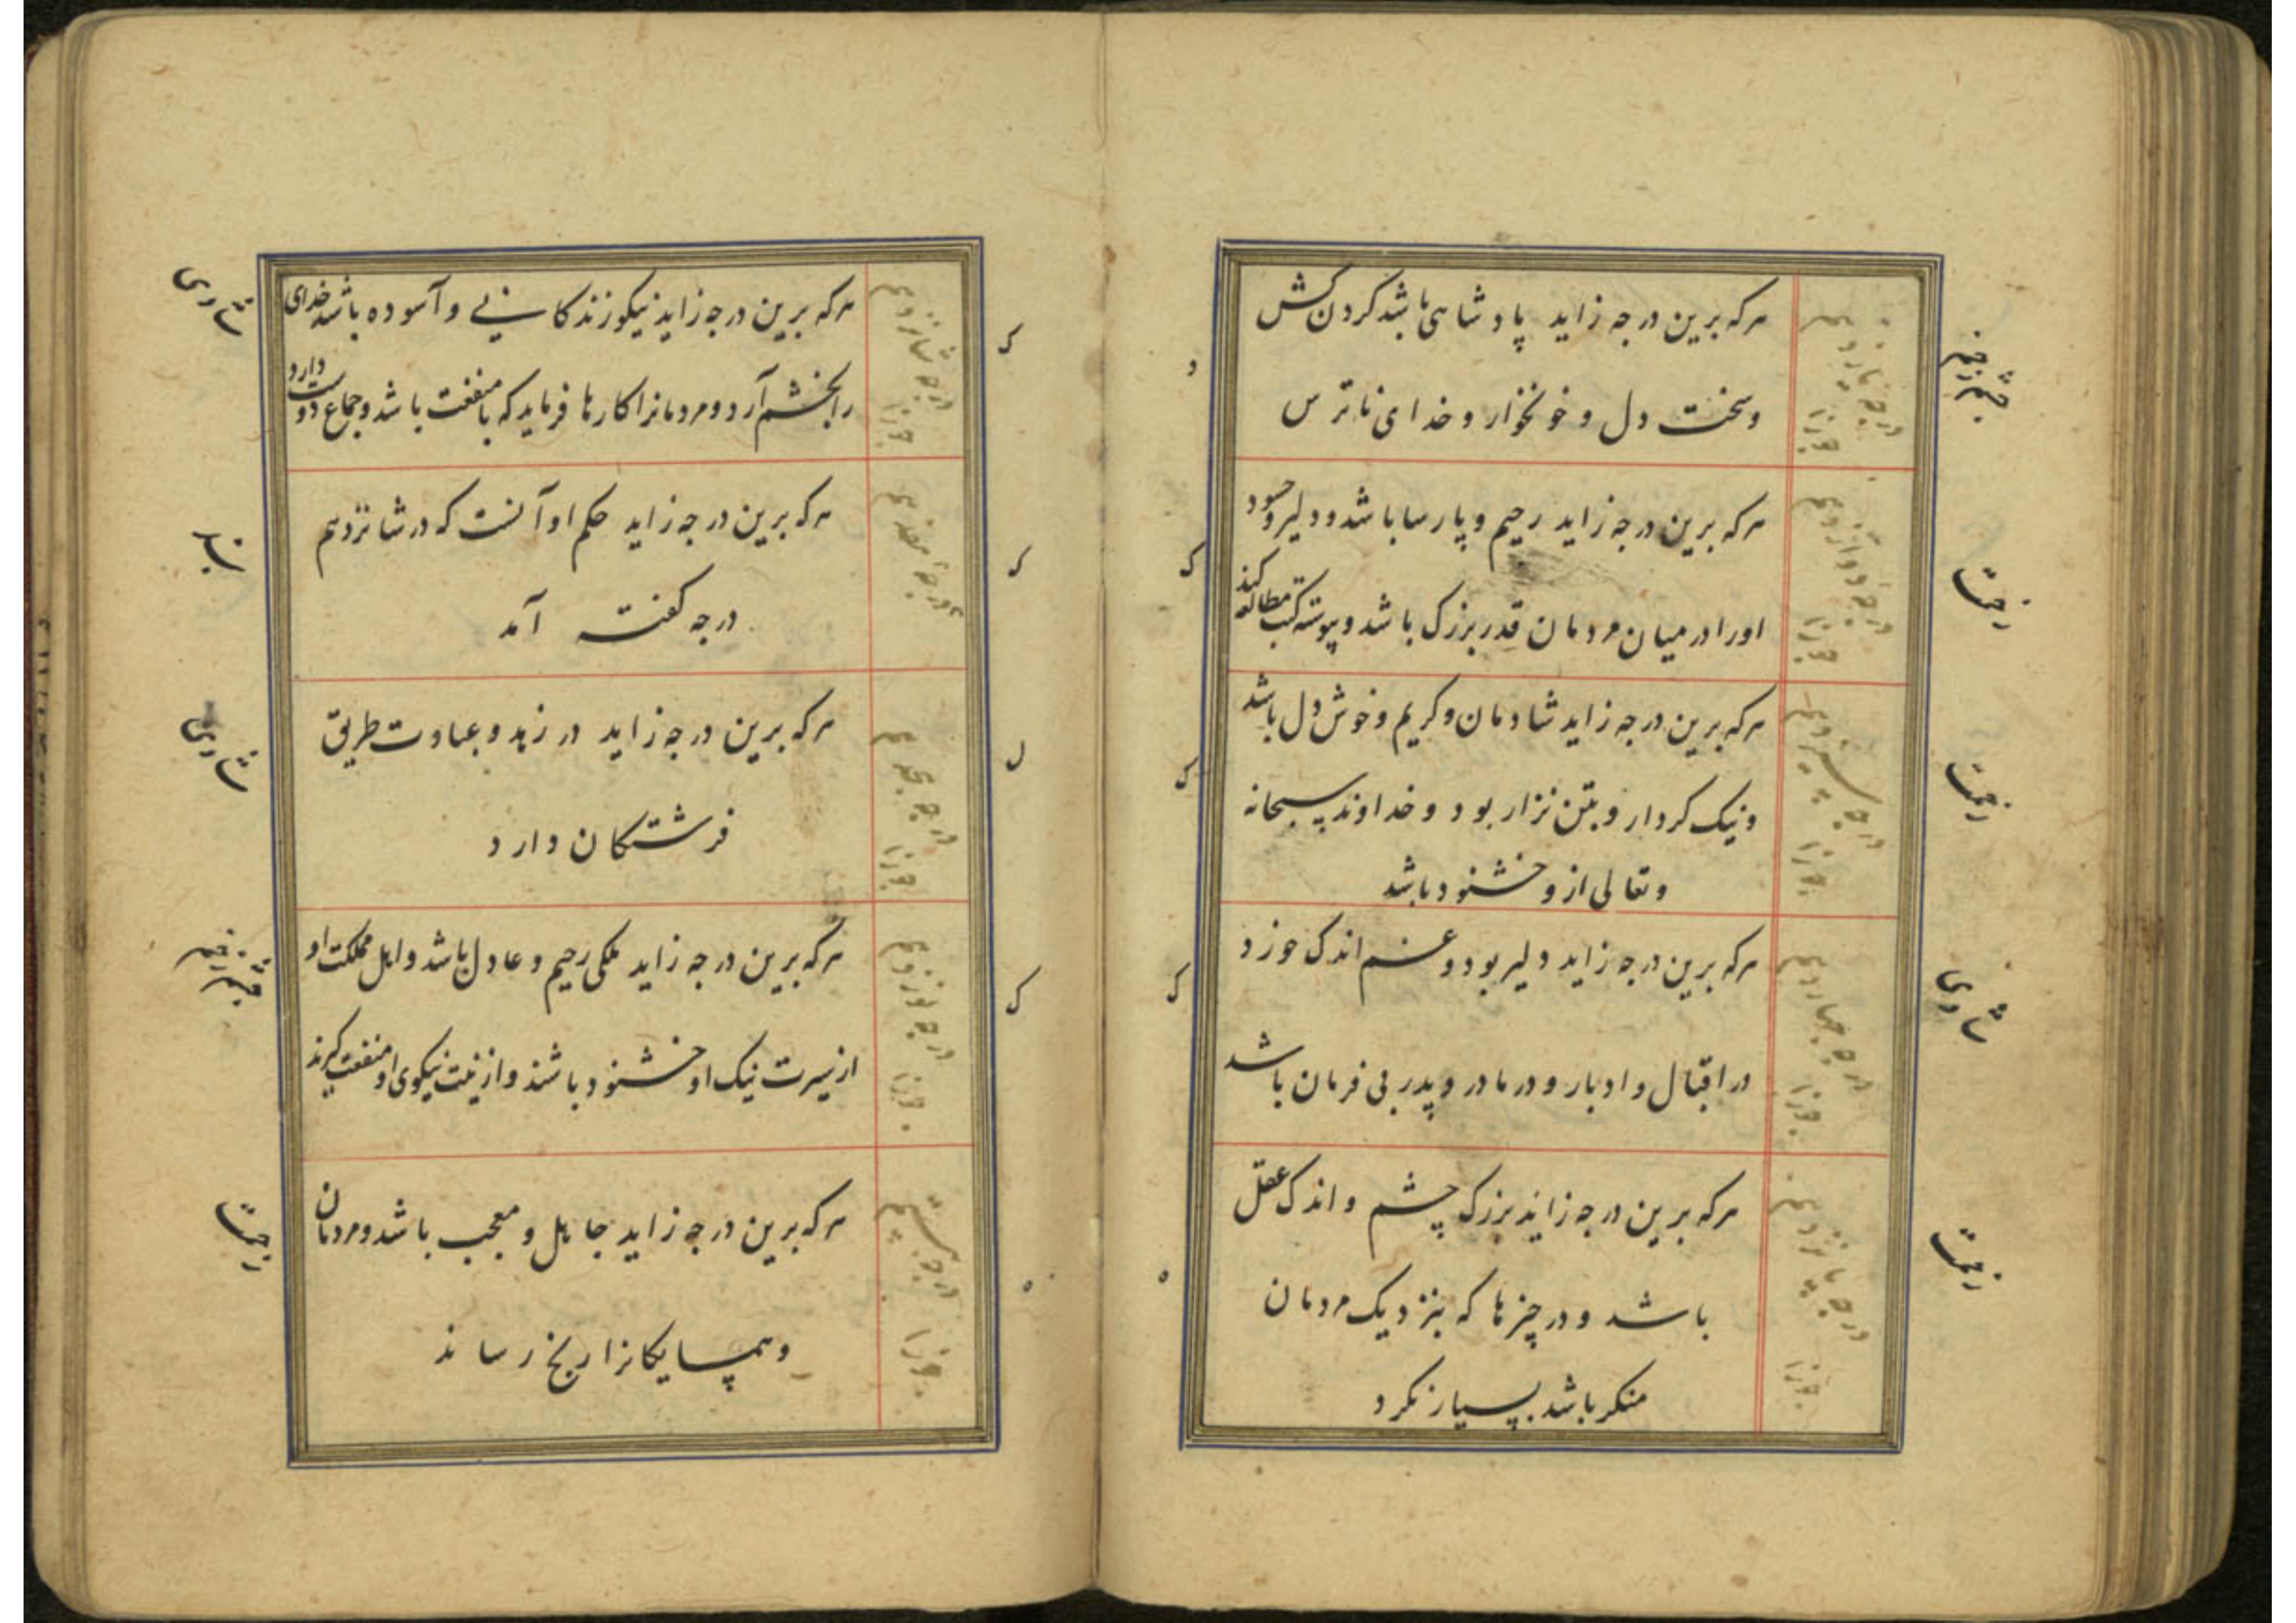 درجه یازدهم
جوزا
هرکه برین درجه زاید پادشاهی باشد کردن کش
و سخت دل و خونخوار و خدای ناترس
د
درجه دوازدهم
جوزا
هرکه برین درجه زاید رحیم و پارسا باشد و دلیر و حسود
او را در میان مردمان قدر بزرک باشد و پیوسته کتب مطالعه کند
ک
درجه سیزدهم
جوزا
هرکه برین درجه زاید شادمان و کریم و خوش دل باشد
و نیک کردار و بتن نزار بود و خداوند سبحانه
و تعالی ازو خشنود باشد
ک
درجه چهاردهم
جوزا
هرکه برین درجه زاید دلیر بود و غم اندک خورد
در اقبال و ادبار و در مادر و پدر بی فرمان باشد
ک
درجه پانزدهم
جوزا
هرکه برین درجه زاید بزرک چشم و اندک عقل
باشد و در چیزها که بنزدیک مردمان
منکر باشد بسیار نکرد
ه
درجه شانزدهم
جوزا
هرکه برین درجه زاید نیکو زندکانی و آسوده باشد خدای
را بخشم آرد و مردمانرا کارها فرماید که با منفعت باشد و جماع دوست دارد
ک
درجه هفدهم
هرکه برین درجه زاید حکم او آنست که در شانزدهم
درجه کفته آمد
ک
درجه هجدهم
جوزا
هرکه برین درجه زاید در زهد و عبادت طریق
فرشتکان دارد
ل
درجه نوزدهم
جوزا
هرکه برین درجه زاید ملکی رحیم و عادل باشد و اهل مملکت او
از سیرت نیک او خشنود باشند و از نیت نیکوی او منفعت کیرند
ک
درجه بیستم
جوزا
هرکه برین درجه زاید جاهل و معجب باشد و مردمان
و همسایکانرا رنج رساند
ه